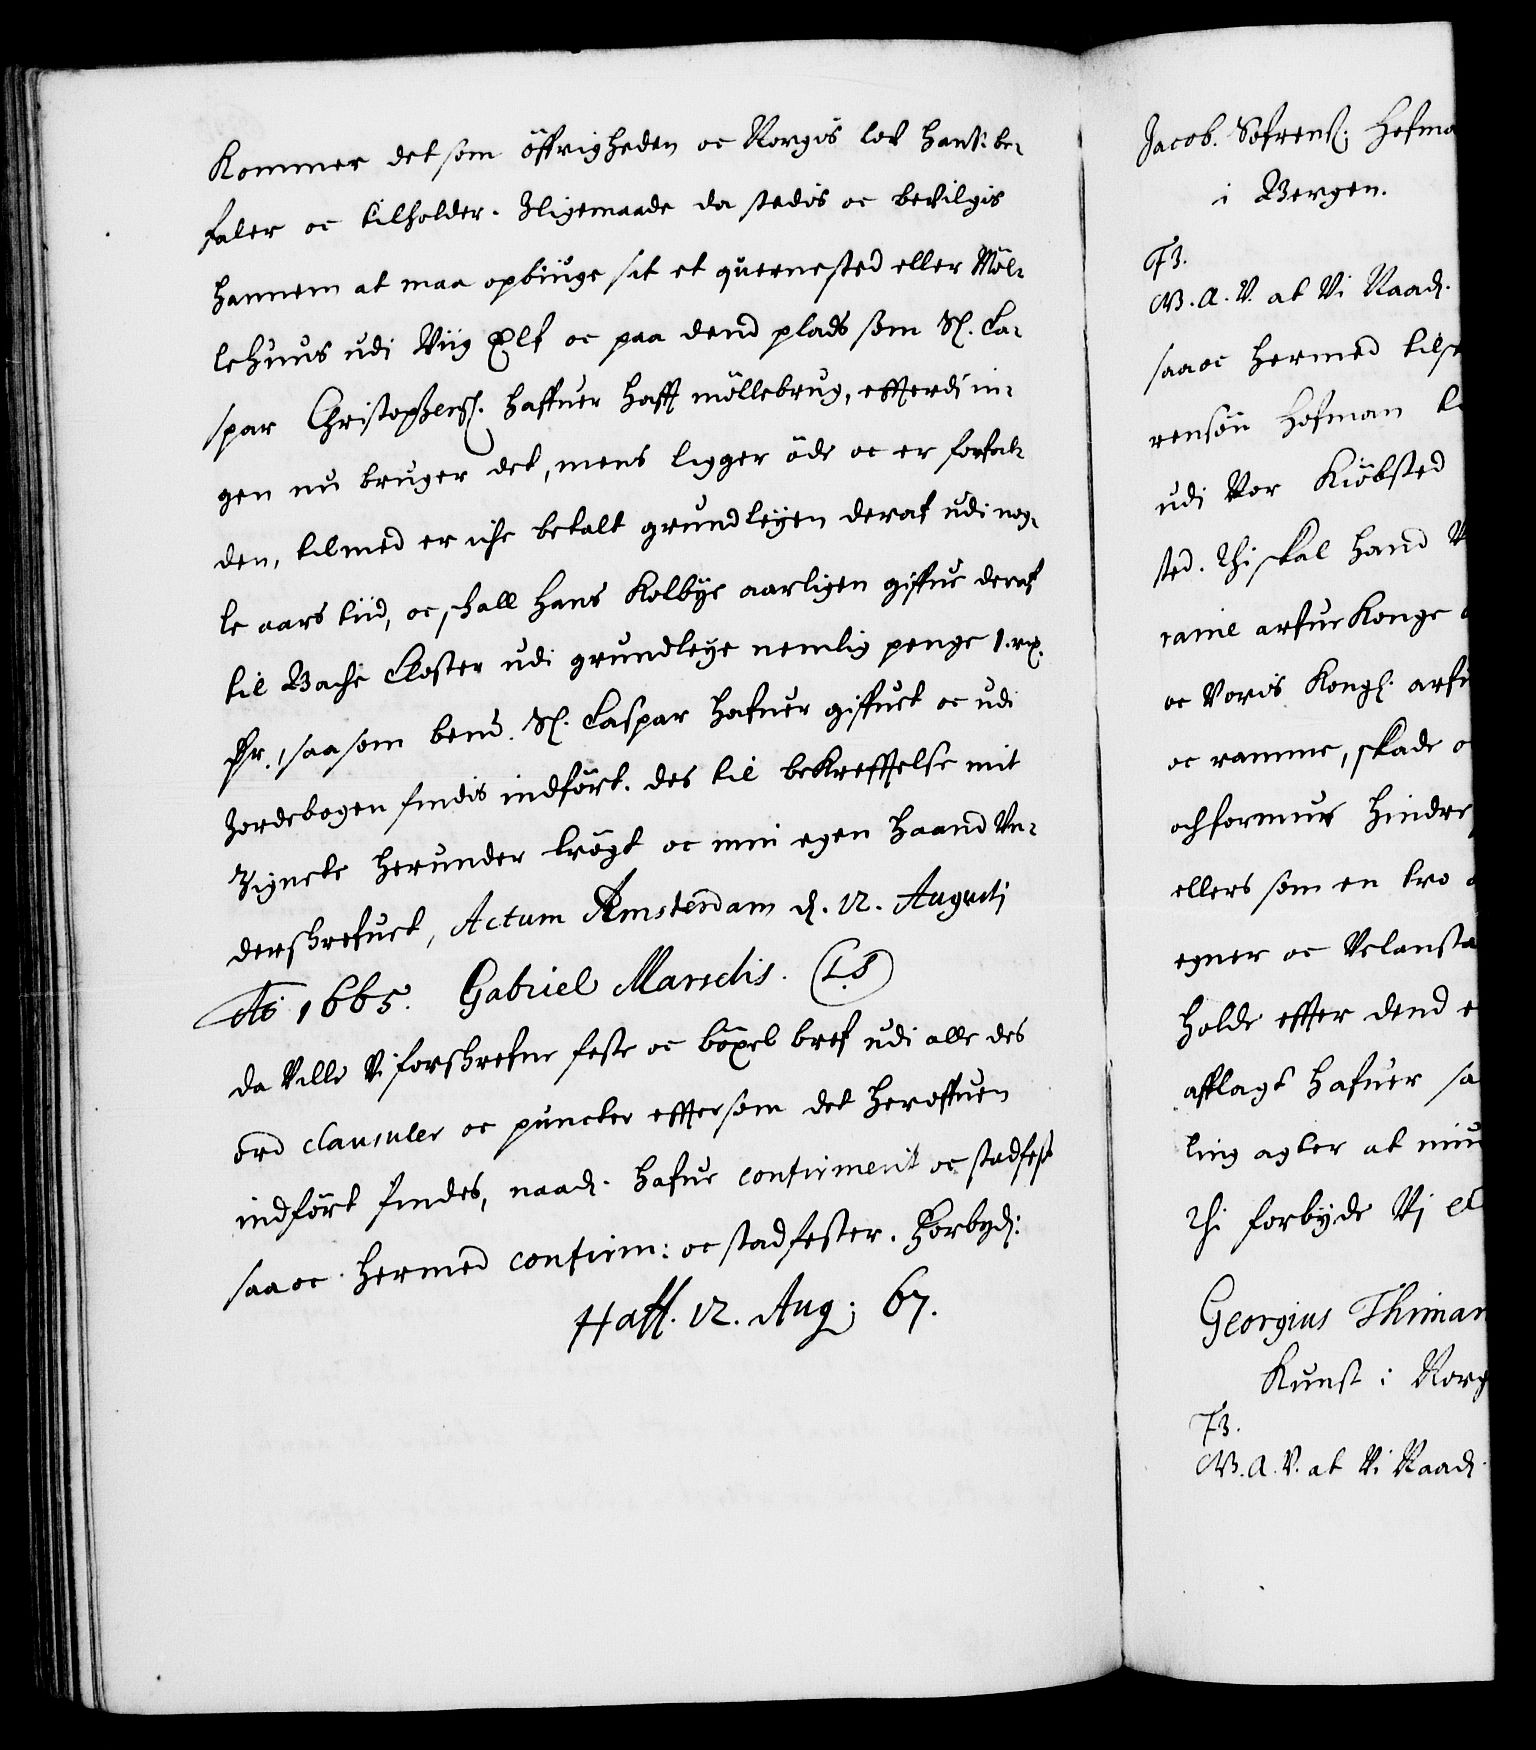 Kommer det som öffrigheden oc Norgis lov hannem be-
faler oc tilholder. Iligemaade da stedis oc bevilgis
hannem at maa opbiuge sit et quernested eller Möl-
lehuus udi Viig Elf oc paa dend plads som Sl. Ca-
spar Christophersl. haffuer hafft möllebrug, effterdi in-
gen nu bruger det, mens ligger öde oc er forfal-
den, tilmed er iche betalt grundleyen deraf udi nog-
le aars tiid, oc schall Hans Kolbye aarligen giffue deraf
til Bache Closter udi grundleye nemlig penge 1. rx.
Cr. saasom bemd. Sl. Caspar hafuer giffuet oc udi
Jordebogen findis indfört. des til bekrefftelse mit
Zignete herunder trögt oc min egen haand Vn-
derschrefuet, Actum Amsterdam d. 12. Augusti
Ao 1665. Gabriel Marselis. (L.S)
da Ville Vi forschrefne feste oc böxel bref udi alle des
ord clausuler oc puncter efftersom det heroffuen
indfört findes, naadl. hafue confirmerit oc stadfest
saa oc hermed confirm: oc stadfester. Forbydl:
Haff. 12. Aug: 67.
Jacob. Sofrensl. Hofma
i Bergen.
F3.
G.A.V. at Vi Naadl.
saa oc hermed tils
rensön Hofman
udi Vor Kiöbsted
sted. Thi skal hand
raine arfue Konge
oc Voris Kongl. arfu
oc ramme, skade o
och formue hindre
ellers som en tro
egner oc Velansta
holde effter dend e
afflagt hafuer sa
ling agter at niu
Thi forbyde Vi el
Georgius Thiman
Kunst i Norg
F3.
G.A.V. at Vi Naadl.